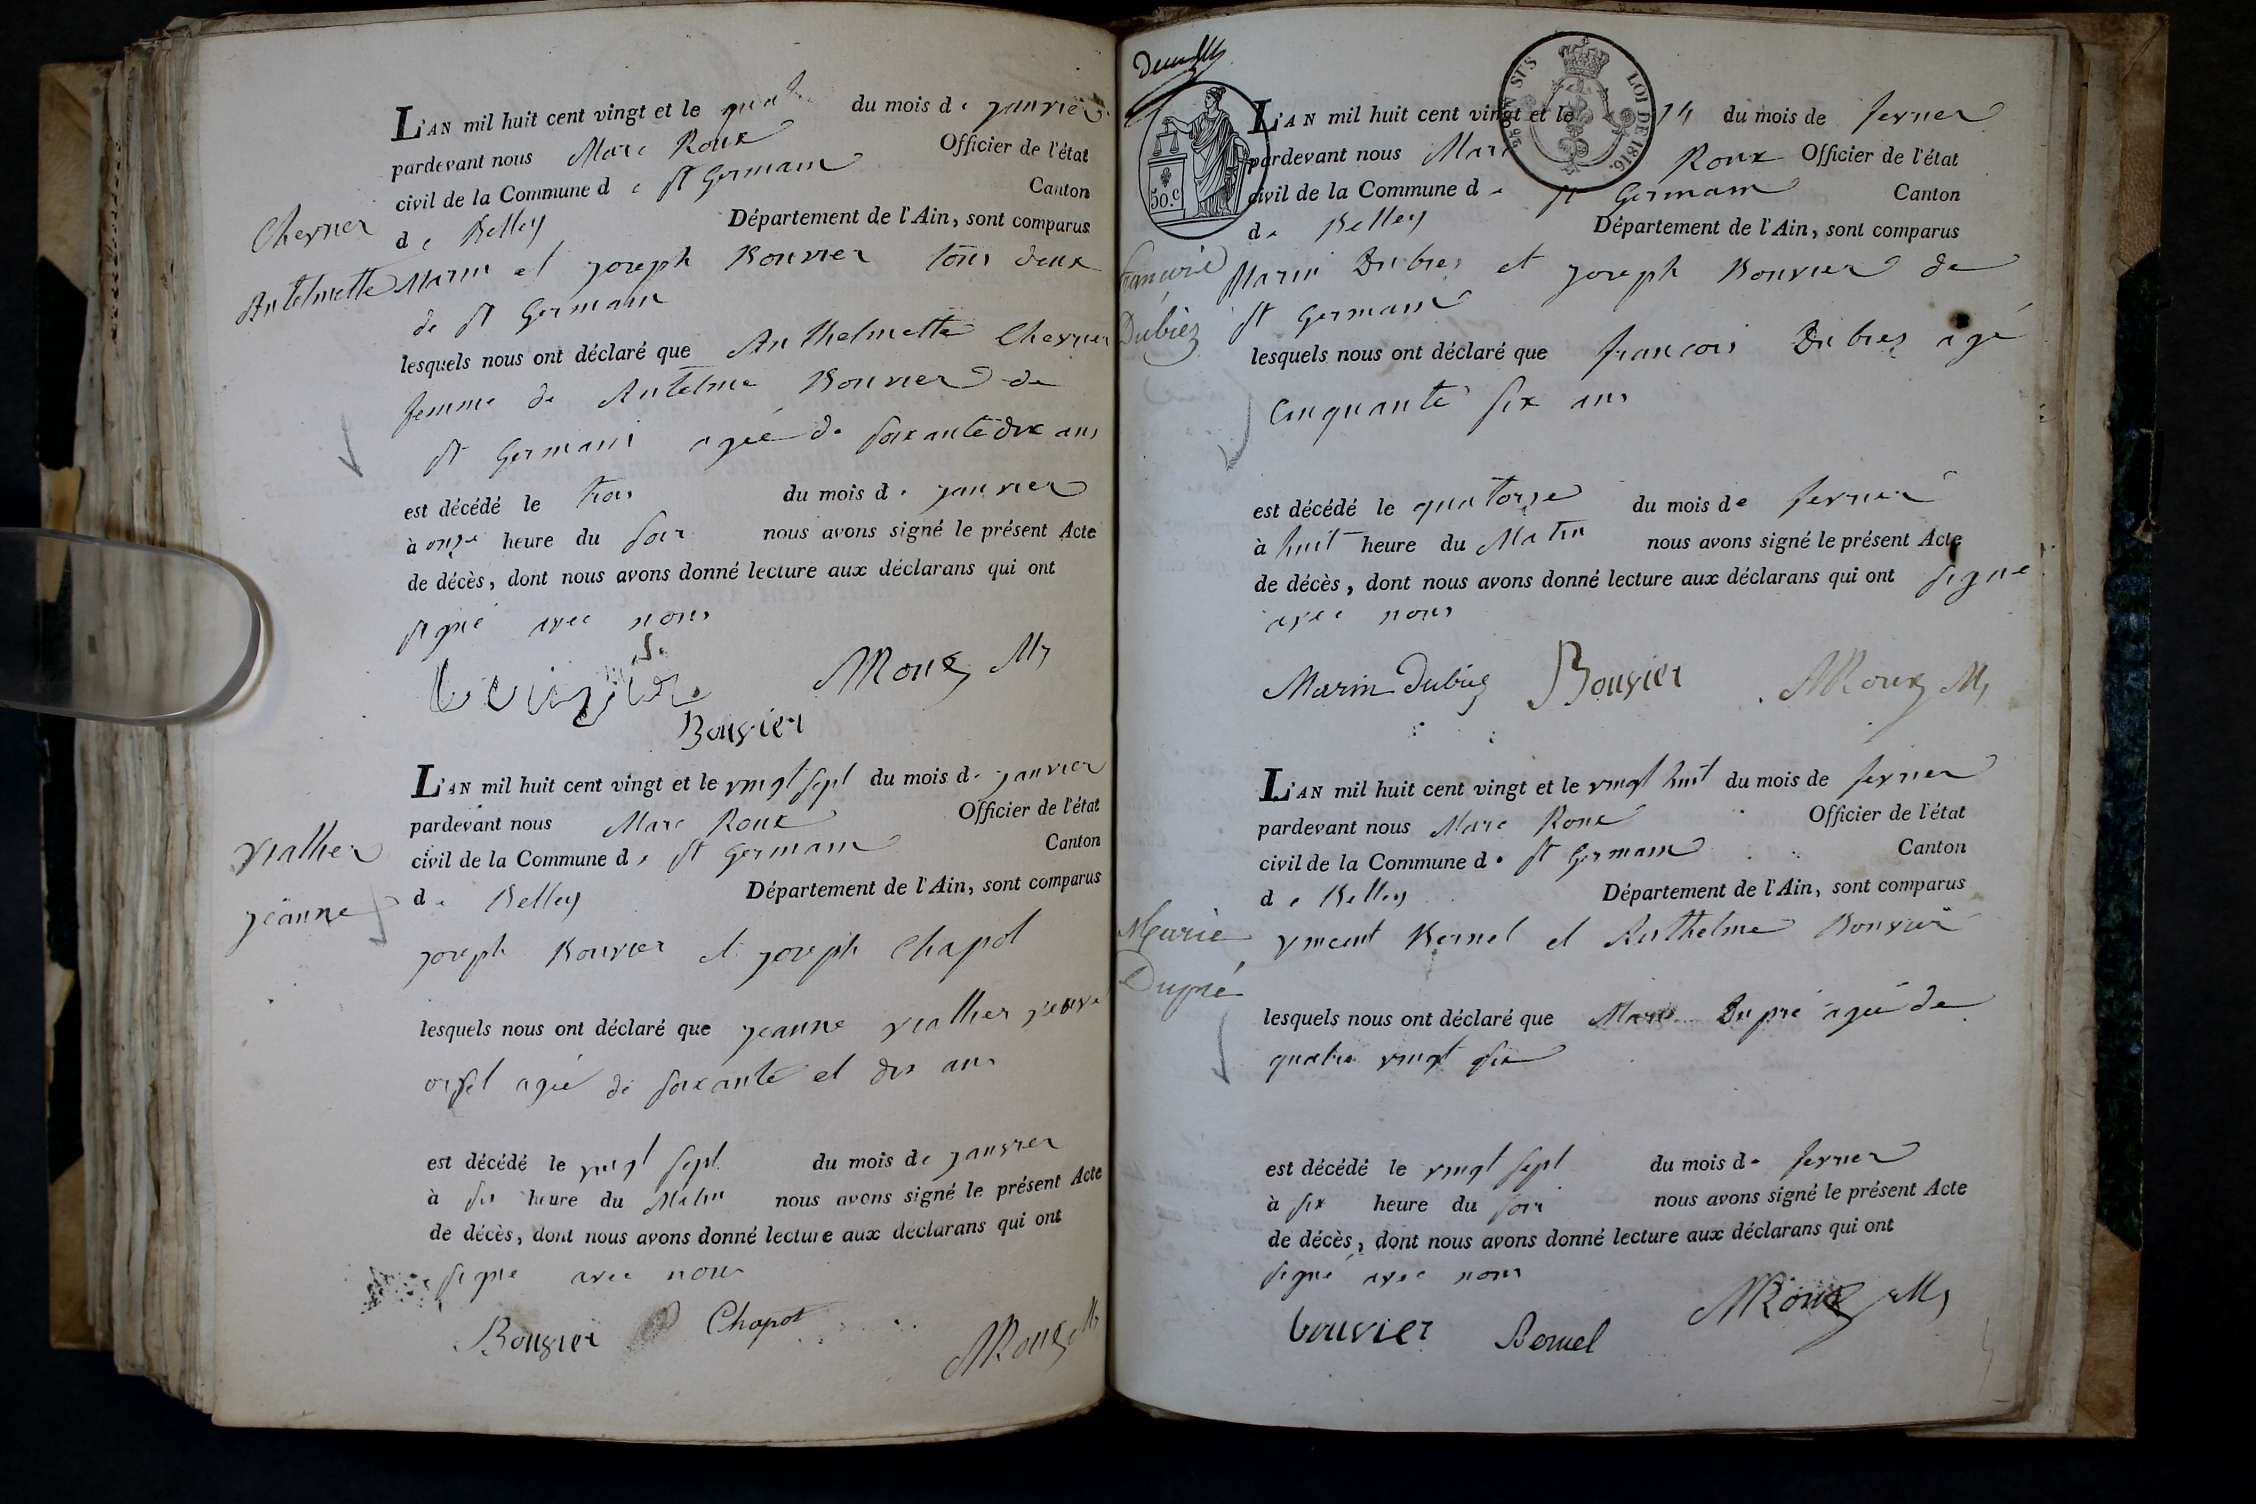 Chevrier
Antelmette
L'AN mil huit cent vingt et le quatre du mois de janvier
pardevant nous Marc Roux Officier de l'état
civil de la Commune de St Germain Canton
de Belley Département de l'Ain, sont comparus
Marin et joseph Bouvier tous deux
de St Germain
lesquels nous ont déclaré que Anthelmette Chevrier
femme de Antelme Bouvier de
St Germain agée de soixante dix ans
est décédé le trois du mois de janvier
à onze heure du soir nous avons signé le présent Acte
de décès, dont nous avons donné lecture aux déclarans qui ont
signé avec nous
MRoux
Bouvier
Viallier
jeanne
L'AN mil huit cent vingt et le vingt sept du mois de janvier
pardevant nous Marc Roux Officier de l'état
civil de la Commune de St Germain Canton
de Belley Département de l'Ain, sont comparus
joseph Bouvier et joseph Chapot
lesquels nous ont déclaré que jeanne viallier veuve
orsel agée de soixante et dix ans
est décédé le vingt sept du mois de janvier
à six heure du Matin nous avons signé le présent Acte
de décès, dont nous avons donné lecture aux déclarans qui ont
signé avec nous
Bouvier Chapot MRoux
50.c
25 C. EN SUS
LOI DE 1816.
francois
Dubiez
L'AN mil huit cent vingt et le 14 du mois de fevrier
pardevant nous Marc Roux Officier de l'état
civil de la Commune de St Germain Canton
de Belley Département de l'Ain, sont comparus
Marin Dubiez et joseph Bouvier de
St Germain
lesquels nous ont déclaré que francois Dubiez agé
Cinquante six ans
est décédé le quatorze du mois de fevrier
à huit heure du Matin nous avons signé le présent Acte
de décès, dont nous avons donné lecture aux déclarans qui ont signé
avec nous
Marin Dubiez Bouvier MRoux
Marie
Dupré
L'AN mil huit cent vingt et le vingt huit du mois de fevrier
pardevant nous Marc Roux Officier de l'état
civil de la Commune de St Germain Canton
de Belley Département de l'Ain, sont comparus
vincent Bernel et Anthelme Bouvier
lesquels nous ont déclaré que Marie Dupré agée de
quatre vingt six
est décédé le vingt sept du mois de fevrier
à six heure du soir nous avons signé le présent Acte
de décès, dont nous avons donné lecture aux déclarans qui ont
signé avec nous
bouvier Bernel MRoux